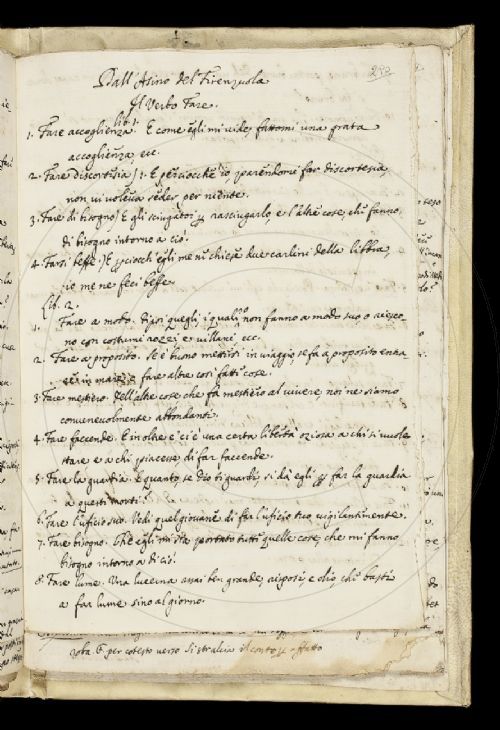 Dall'Asino del Firenzuola
Il Verbo Fare.
lib. 1.
1. Fare accoglienza. E come egli mi vide, fattomi una grata
accoglienza, ecc.
2. Fare discortesia). E perciocché io, parendomi far discortesia,
non vi voleva seder per niente.
3. Fare di bisogno) E gli sciugatoi per rasciugarlo, e l'altre cose, che fanno
di bisogno intorno a ciò.
4. Farsi beffe.) E perciocch'egli me ne chiese due carlini della libbra,
io me ne feci beffe.
Lib. 2.
1. Fare a modo. Dipoi quegli, i quali non fanno a modo suo o
no con costumi rozzi e villani ecc.
2. Fare a proposito. Se è buono mettersi in viaggio, se fa a proposito
in mare, o fare altre così fatte cose.
3. Fare mestiero. Dell'altre cose che fa mestiero al vivere, noi ne siamo
convenevolmente abbondanti.
4. Fare faccende. E inoltre e' ci è una certa libertà oziosa a chi si vuole
stare e a chi piacesse, di far faccende.
5. Fare la guardia. E quanto, se Dio ti guardi, si dà egli per far la guardia
a questi morti?
6. Fare l'uficio suo. Vedi quel giovane di far l'uficio tuo vigilantemente.
7. Fare bisogno. Ch'egli mi sia portato tutte quelle cose, che mi fanno
bisogno intorno a di ciò.
8. Fare lume. Una lucerna assai ben grande, rispose, e olio, che basti
a far lume sino al giorno.
roba. E per cotesto verso si stralcia il conto per affatto